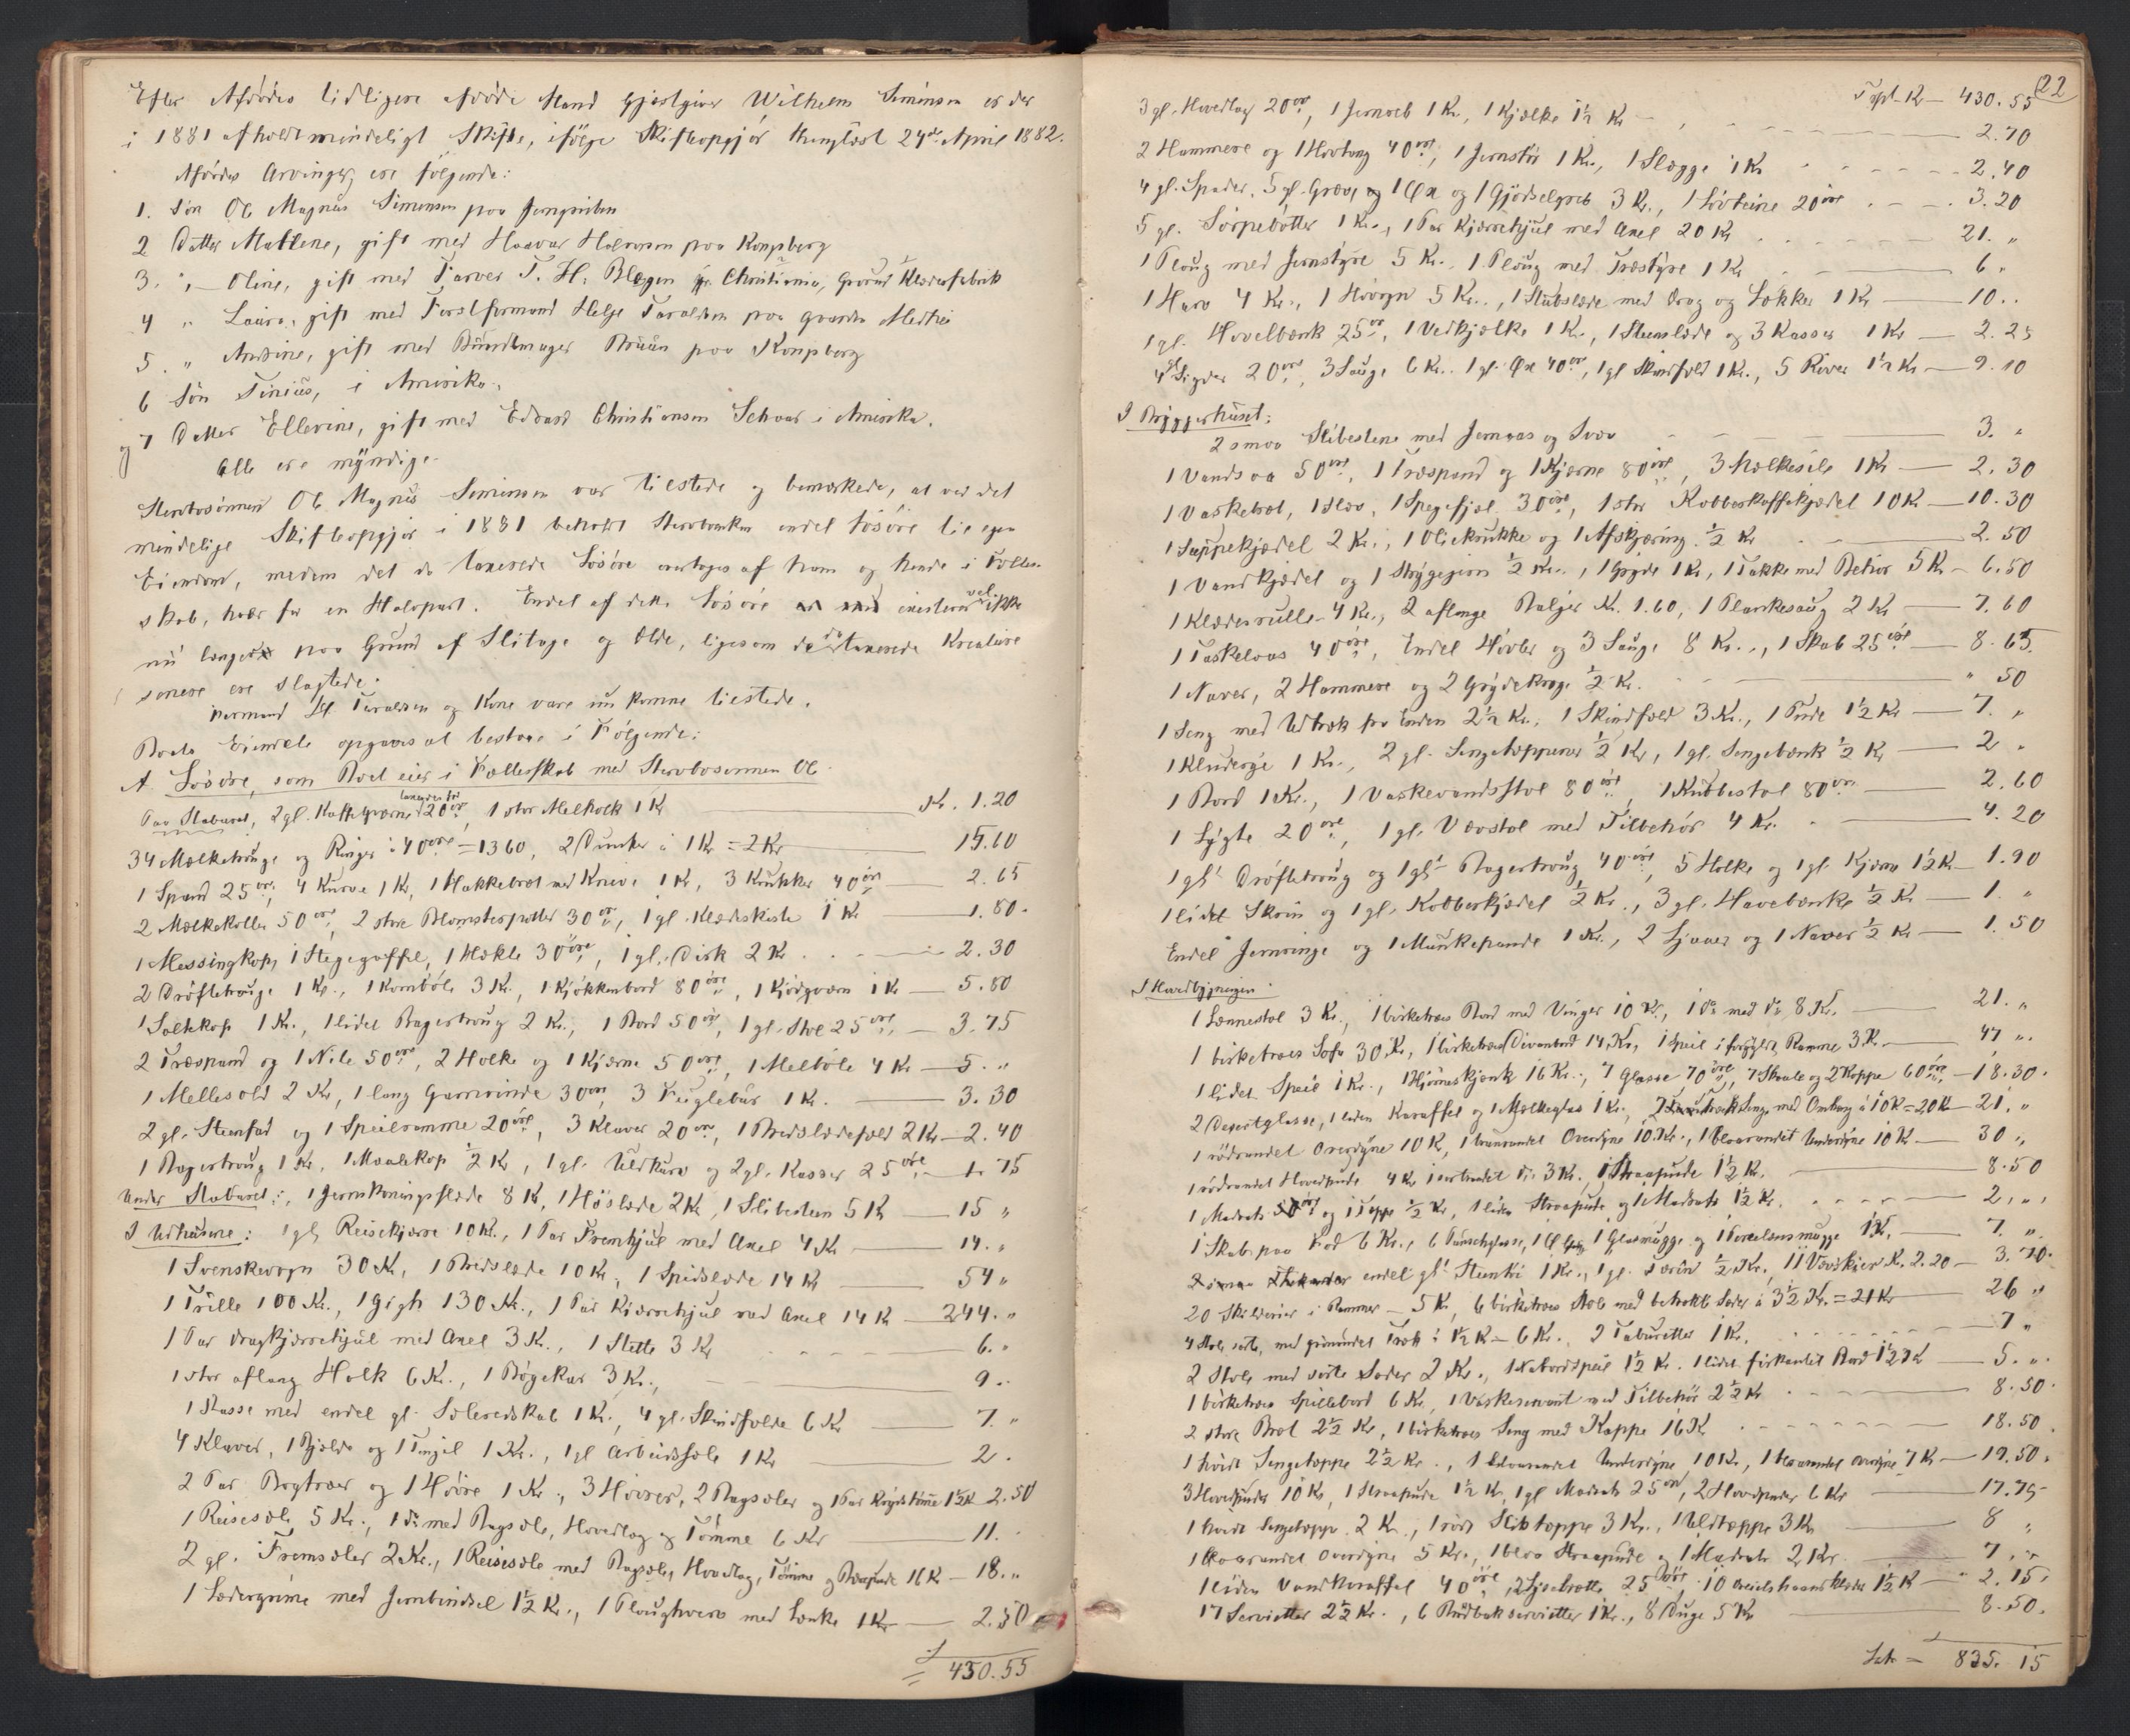 Efter Afdødes tidligere afdøde Mand Gjæstgiver Wilhelm Simonsen er der
i 1881 afholdt mindeligt Skifte, ifølge Skifteopgjør thinglæst 24de April 1882.
Afdødes Arvinger ere følgende:
1. Søn Ole Magnus Simonsen paa
2 Datter Mathene, gift med Haavar Halvorsen paa Kongsberg
3. " — Oline, gift med Farver T. H. Christiania, Klædesfabrik
4 " Laura, gift med Forstformand Helge Taraldsen paa
5. " Andrine, gift med Buntmager Bruun paa Kongsberg
6 Søn Tinius, i Amerika.
og 7 Datter Ellevine, gift med Edvard Christiansen i Amerika.
Alle ere myndige.
Stervbosønnen Ole Magnus Simonsen var tilstede og bemærkede, at ved det
mindelige Skifteopgjør i 1881 beholdt Stervboenken endel Løsøre til egen
Eiendom, medens det da taxerede Løsøre overtoges af ham og hende i Fælles-
skab, hver for en Halvpart. Endel af dette Løsøre existerer vel ikke
nu længer paa Grund af Slitage og Ælde, ligesom de da taxerede Kreature
senere ere slagtede.
Formand H. Taraldsen og Kone vare nu komne tilstede.
Boets Eiendele opgaves at bestaae i Følgende:
A Løsøre, som Boet eier i Fællesskab med Stervbosønnen Ole
Paa Staburet, 2 gl. Kaffeqværne taxeres for 20 øre, 1 stor Melholk 1 Kr Kr. 1.20
34 Mælketrouge og Ringer à 40 øre = 13.60, 2 Dunker à 1 Kr = 2 Kr 15.60
1 Spand 25 øre, 4 Kurve 1 Kr, 1 Hakkebræt med Knive 1 Kr, 3 Krukker 40 øre — 2.65
2 Mælkekoller 50 øre, 2 store Blomsterpotter 30 øre, 1 gl. Klædeskiste 1 Kr — 1.80.
1 Messingkop, 1 Stegegaffel, 1 Hækle 30 øre, 1 gl. Disk 2 Kr — 2.30
2 Drøftetrouge 1 Kr., 1 Kornbøle 3 Kr., 1 Kjøkkenbord 80 øre, 1 Kjødqværn 1 Kr — 5.80
1 Saltekop 1 Kr., 1 lidet Bagertroug 2 Kr., 1 Bord 50 øre, 1 gl. Stol 25 øre, — 3.75
2 Træspand og 1 50 øre, 2 Holke og 1 Kjærne 50 øre, 1 Melbøle 4 Kr — 5. "
1 Mellesold 2 Kr, 1 lang Garnvinde 30 øre, 3 Fuglebur 1 Kr. — 3.30
2 gl. Steenfad og 1 Speilramme 20 øre, 3 Klaver 20 øre, 1 Bredslædefæld 2 Kr — 2.40
1 Bagertroug 1 Kr, 1 Maalekop ½ Kr, 1 gl. Uldkurv og 2 gl. Kasser 25 øre — 1.75
Under Staburet: 1 Jernskoningsslæde 8 Kr, 1 Høslæde 2 Kr, 1 Slibesteen 5 Kr — 15 "
I Udhusene: 1 gl. Reisekjærre 10 Kr., 1 Par Fremhjul med Axel 4 Kr — 14. "
1 Svenskevogn 30 Kr, 1 Bredslæde 10 Kr., 1 Spidslæde 14 Kr — 54 "
1 Trille 100 Kr., 1 Gigh 130 Kr., 1 Par Kjærrehjul med Axel 14 Kr — 244. "
1 Par Dragkjærrehjul med Axel 3 Kr., 1 Slette 3 Kr 6. "
1 stor aflang Holk 6 Kr., 1 Bøgekar 3 Kr., 9 ..
1 Kasse med endel gl. Seleredskab 1 Kr., 4 gl. Skindfælde 6 Kr — 7. "
4 Klaver, 1 Bjælde og 1 1 Kr., 1 gl Arbeidssele 1 Kr — 2 .
2 Par Bogtræer og 1 1 Kr., 3 2 Bagseler og 1 Par 1½ Kr 2.50
1 Reisesele 5 Kr., 1 do med Bagsele, Hovedlag og Tømme 6 Kr — 11.
2 gl. Fremseler 2 Kr., 1 Reisesele med Bagsele, Hovedlag, Tømme og 16 Kr — 18. "
1 Lædergrime med Jernbindsel 1½ Kr., 1 Plough med Lænke 1 Kr — 2.50
430.55
22
Tpt. Kr — 430.55
3 gl. Hovedlag 20 øre, 1 1 Kr, 1 Kjælke 1½ Kr — 2.70
2 Hammere og 1 Hovtang 40 øre, 1 Jernstør 1 Kr., 1 Slægge 1 Kr 2.40
4 gl. Spader, 5 gl. Græv, 1 Øx og 1 Gjødselgreb 3 Kr., 1 20 øre 3.20
5 gl. Sørpebøtter 1 Kr., 1 Par Kjærrehjul med Axel 20 Kr 21. "
1 Ploug med Jernstyre 5 Kr., 1 Ploug med Træstyre 1 Kr 6 "
1 Harv 4 Kr., 1 Høvogn 5 Kr., 1 Stubslæde med Drag og 1 Kr — 10 ..
1 gl. Høvelbænk 25 øre, 1 Vedkjælke 1 Kr., 1 Steenslæde og 3 Kasser 1 Kr — 2.25
4 gl Sigder 20 øre, 3 Sauge 6 Kr., 1 gl. Øx 40 øre, 1 gl Skindfæld 1 Kr., 5 River 1½ Kr — 9.10
I Bryggerhuset:
2 smaa Slibestene med Jernaas og Sveiv 3. "
1 Vandsaa 50 øre, 1 Træspand og 1 Kjærne 80 øre, 3 Mælkesile 1 Kr — 2.30
1 Vaskebræt, 1 1 Spegefjæl 30 øre, 1 stor Kobberkaffekjædel 10 Kr — 10.30
1 Suppekjædel 2 Kr., 1 Oliekrukke og 1 Afskjæring ½ Kr 2.50
1 Vandkjædel og 1 Strygejern ½ Kr., 1 Gryde 1 Kr, 1 Takke med Behør 5 Kr — 6.50
1 Klæderulle 4 Kr., 2 aflange Baljer Kr. 1.60, 1 Plankesaug 2 Kr — 7.60
1 Taskelaas 40 øre, Endel Høvler og 3 Sauge 8 Kr., 1 Skab 25 øre — 8.65.
1 Naver, 2 Hammere og 2 Grydekroge ½ Kr. — " 50
1 Seng med Udtræk fra Enden 2½ Kr., 1 Skindfæld 3 Kr., 1 Pude 1½ Kr — 7. "
1 Kludrye 1 Kr., 2 gl. Sengetæpperer ½ Kr, 1 gl. Sengebænk ½ Kr — 2 "
1 Bord 1 Kr., 1 Vaskevandsstol 80 øre, 1 Kubbestol 80 øre — 2.60
1 Lygte 20 øre, 1 gl. Vævstol med Tilbehør 4 Kr. — 4.20
1 gl. Drøftetroug og 1 gl. Bagertroug 40 øre, 5 Holke og 1 gl. Kjærne 1½ Kr — 1.90
1 lidet Skrin og 1 gl. Kobberkjædel ½ Kr., 3 gl. Havebænke ½ Kr — 1. "
Endel Jernringe og 1 Munkepande 1 Kr., 2 Ljaaer og 1 Naver ½ Kr — 1.50
I Hovedbygningen
1 Lænnestol 3 Kr., 1 birketræes Bord med Vinger 10 Kr., 1 do med do 8 Kr. — 21. "
1 birketræes Sofa 30 Kr., 1 birketræes Divanbord 14 Kr, 1 Speil i forgyldt Ramme 3 Kr. — 47 ".
1 lidet Speil 1 Kr., 1 Hjørneskjænk 16 Kr., 7 Glasse 70 øre, 7 Skaale og 2 Koppe 60 øre — 18.30.
2 Desertglasse, 1 liden Karaffel og 1 Mælkeglas 1 Kr., 2 Senge med Omhæng à 10 Kr = 20 Kr — 21. "
1 rødrandet Overdyne 10 Kr, 1 Overdyne 10 Kr., 1 blaarandet Underdyne 10 Kr — 30 "
1 rødrandet Hovedpude 4 Kr, 1 do 3 Kr., 1 Straapude 1½ K. — 8.50
1 Madrats og 1 Tæppe ½ Kr, 1 liden Straapude og 1 Madrats 1½ Kr. — 2. " .
1 Skab paa Fod 6 Kr., 6 Punschglasse, 1 Øl 1 Glasmugge og 1 Porcelænsmugge 1 Kr. — 7. "
endel gl. Steentøi 1 Kr., 1 gl. ½ Kr., 11 Vævskier Kr. 2.20 — 3.70.
20 Skilderier i Rammer — 5 Kr, 6 birketræes Stole med betrukne Sæder à 3½ Kr. = 21 Kr 26 "
4 Stole, sorte, med grønrandet Træk à 1½ Kr — 6 Kr. 2 Taburetter 1 Kr. 7 "
2 Stole med sorte Sæder 2 Kr., 1 Nabordspeil 1½ Kr. 1 lidet firkantet Bord 1½ Kr — 5. ".
1 birketræes Spillebord 6 Kr, 1 Vaskeservant med Tilbehør 2½ Kr 8.50.
2 store Bræt 2½ Kr, 1 birketræes Seng med Kappe 16 Kr 18.50.
1 hvidt Sengetæppe 2½ Kr., 1 Underdyne 10 Kr., 1 blaarandet Overdyne 7 Kr — 19.50.
3 Hovedpuder 10 Kr, 1 Straapude 1½ Kr, 1 gl Madrats 25 øre, 2 Hovedpuder 6 Kr — 17.75
1 hvidt Sengetæppe 2 Kr., 1 rødt tæppe 3 Kr., 1 Uldtæppe 3 Kr — 8 "
1 blaarandet Overdyne 5 Kr., 1 blaa Straapude og 1 Madrats 2 Kr. — 7. "
1 liden Vandkaraffel 40 øre, 2 25 øre, 10 Dreielshaandklæder 1½ Kr — 2.15.
17 Servietter 2½ Kr., 6 Brødbakservietter 1 Kr., 8 Duge 5 Kr — 8.50.
Lat. = 835.15